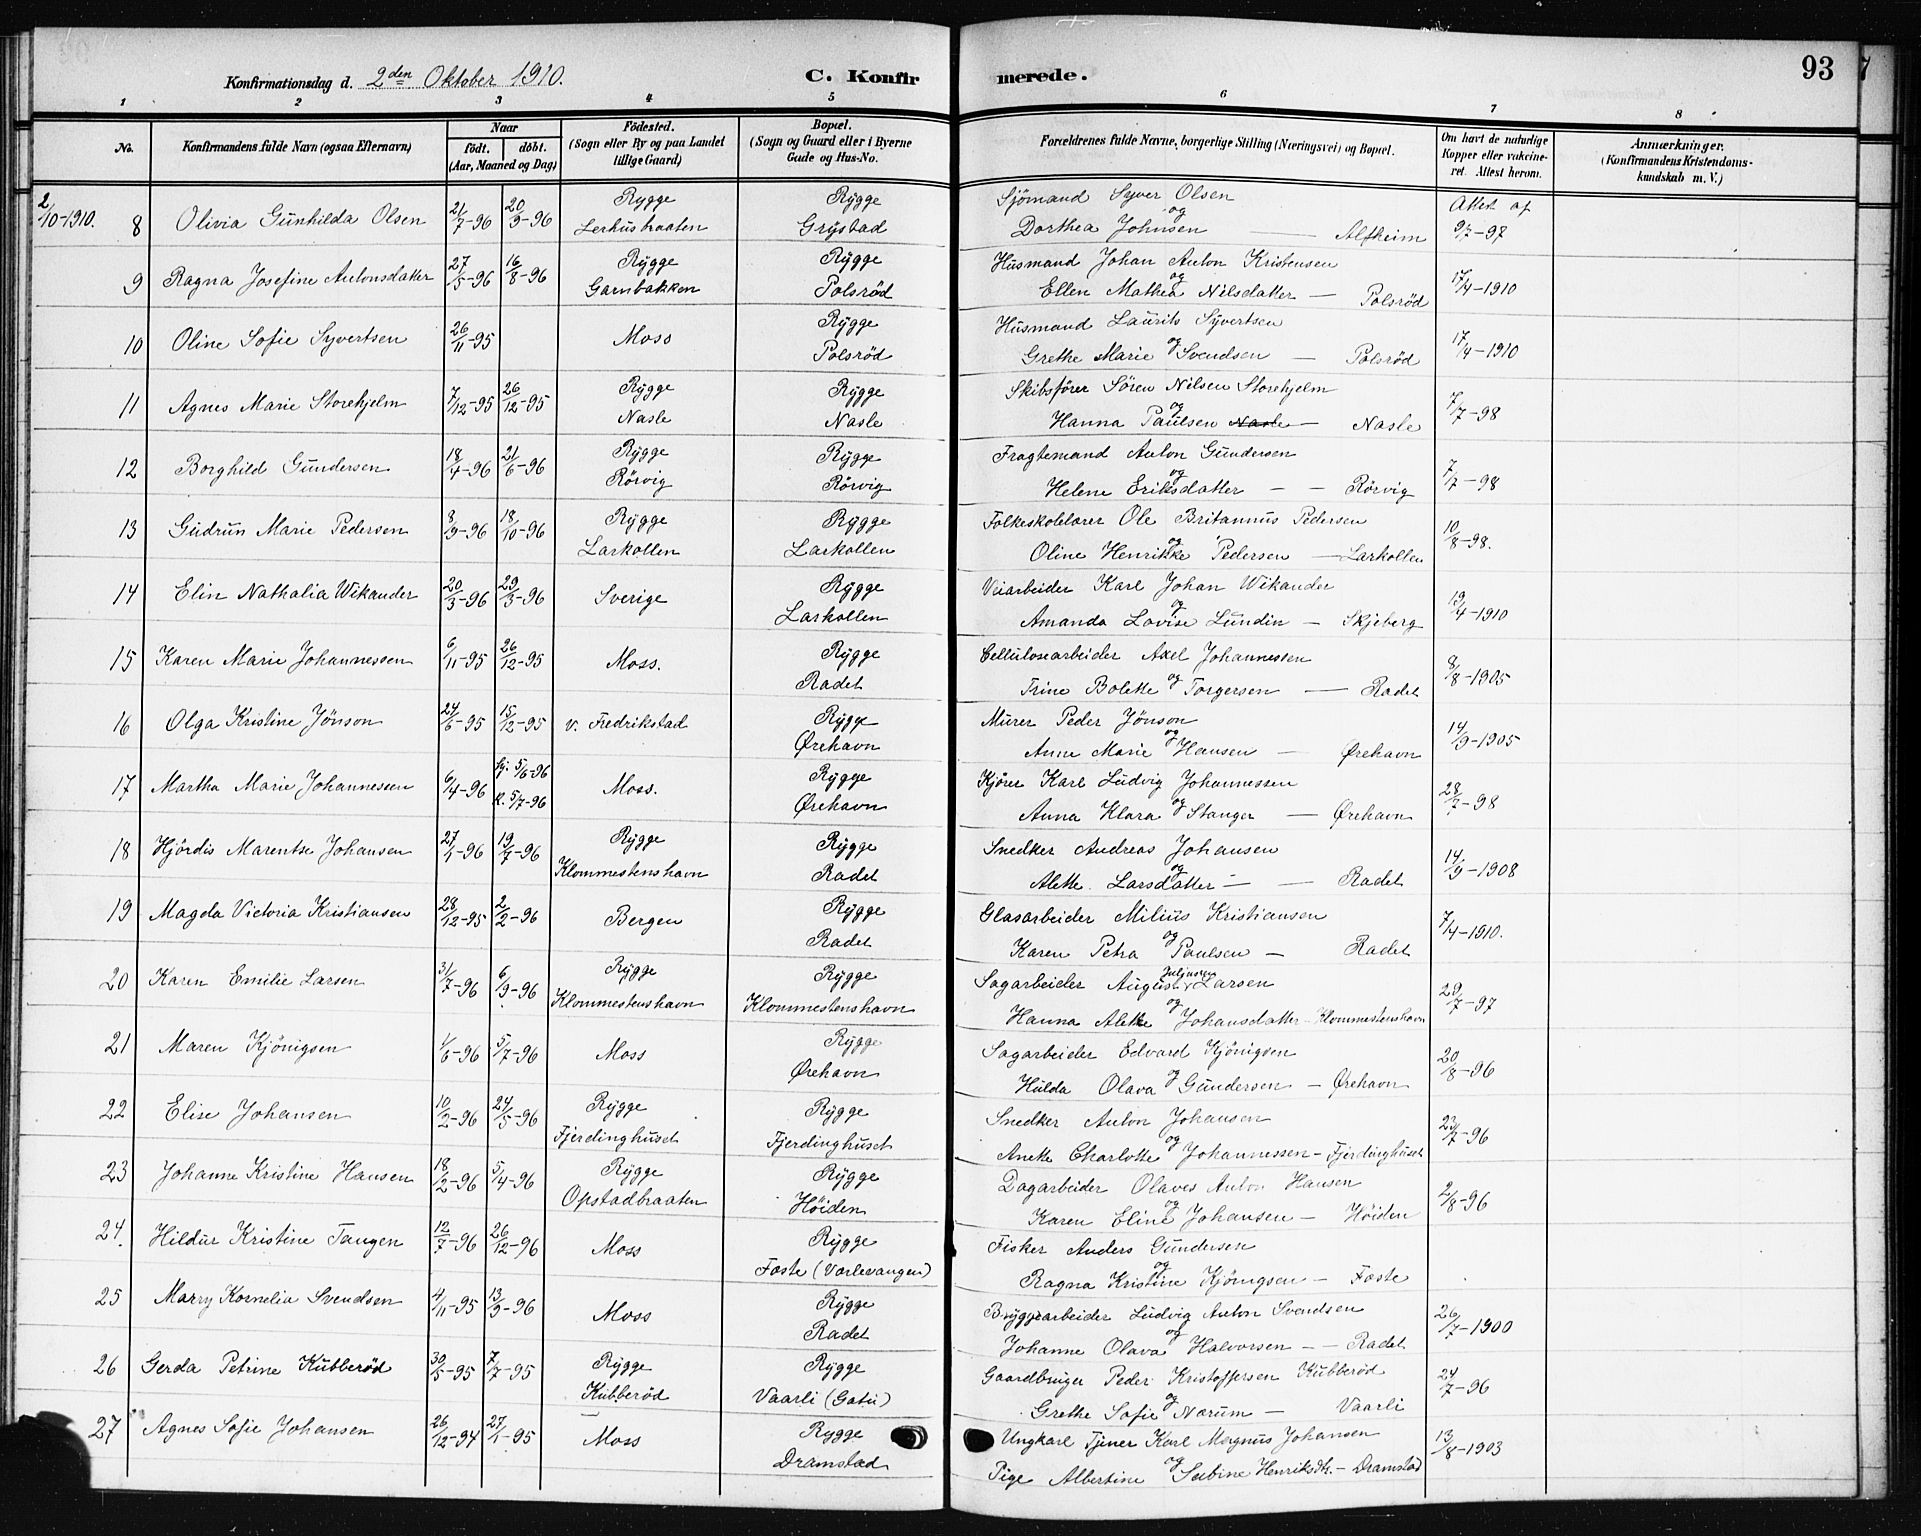 Konfirmationsdag d. 2den Oktober 1910.
C. Konfirmerede.
93
1 2 3 4 5 6 7 8
No.
Konfirmandens fulde Navn (ogsaa Efternavn)
Naar
födt. döbt.
(Aar, Maaned og Dag)
Födested.
(Sogn eller By og paa Landet
tillige Gaard)
Bopæl.
(Sogn og Gaard eller i Byerne
Gade og Hus-No.
Forældrenes fulde Navne, borgerlige Stilling (Næringsvei) og Bopæl.
Om havt de naturlige
Kopper eller vakcine-
ret. Attest herom.
Anmærkninger.
(Konfirmandens Kristendoms-
kundskab m. V.)
2/10-1910. 8 Olivia Gunhilda Olsen 21/7-96 20/9-96 Rygge Lerhusbraaten Rygge Grystad Sjömand Syver Olsen
og
Dorthea Johnsen — Alfheim Attest af 9/7-97
9 Ragna Josefine Antonsdatter 27/5-96 16/8-96 Rygge Garnbakken Rygge Polsröd Husmand Johan Anton Kristensen
og
Ellen Mathea Nilsdatter — Polsröd 17/4-1910
10 Oline Sofie Syvertsen 26/11-95 Moss Rygge Polsröd Husmand Laurits Syvertsen
og
Grethe Marie Svendsen — Polsröd 17/4-1910
11 Agnes Marie Storehjelm 7/12-95 26/12-95 Rygge Nasle Rygge Nasle Skibsförer Sören Nilsen Storehjelm
og
Hanna Paulsen Nasle — Nasle 7/7-98
12 Borghild Gundersen 18/4-96 21/6-96 Rygge Rörvig Rygge Rörvig Fragtemand Anton Gundersen
og
Helene Eriksdatter — — Rörvig 7/7-98
13 Gudrun Marie Pedersen 8/9-96 18/10-96 Rygge Larkollen Rygge Larkollen Folkeskolelærer Ole Britannus Pedersen
og
Oline Henrikke Pedersen — Larkollen 10/8-98.
14 Elin Nathalia Wikander 20/3-96 29/3-96 Sverige Rygge Larkollen Veiarbeider Karl Johan Wikander
og
Amanda Lovise Lundin — Skjeberg 19/4-1910
15 Karen Marie Johannessen 6/11-95 26/12-95 Moss. Rygge Radet Cellulosearbeider Axel Johannessen
og
Trine Bolette Torgersen — Radet 8/8-1905
16 Olga Kristine Jönson 24/6-95 15/12-95 v. Fredrikstad Rygge Ørehavn Murer Peder Jönson
og
Anne Marie Hansen — Ørehavn 14/9-1905
17 Martha Marie Johannessen 6/4-96 hj. 5/6-96 k. 5/7-96 Moss. Rygge Ørehavn Kjörer Karl Ludvig Johannessen
og
Anna Klara Stanger — Ørehavn 28/7-98
18 Hjördis Marentse Johansen 27/1-96 19/7-96 Rygge Klommestenshavn Rygge Radet Snedker Andreas Johansen
og
Alette Larsdatter — — Radet 14/9-1908
19 Magda Victoria Kristiansen 28/12-95 2/2-96 Bergen Rygge Radet Glasarbeider Milius Kristiansen
og
Karen Petra Paulsen — Radet 7/4-1910.
20 Karen Emilie Larsen 31/7-96 6/9-96 Rygge Klommestenshavn Rygge Klommestenshavn Sagarbeider August Juliussen Larsen
og
Hanna Alette Johansdatter - Klommestenshavn 29/7-97
21 Maren Kjönigsen 1/6-96 5/7-96 Moss Rygge Ørehavn Sagarbeider Edvard Kjönigsen
og
Hulda Olava Gundersen — Ørehavn 20/8-96
22 Elise Johansen 10/2-96 24/5-96 Rygge Fjerdinghuset Rygge Fjerdinghuset Snedker Anton Johansen
og
Anette Charlotte Johannessen - Fjerdinghuset 23/7-96
23 Johanne Kristine Hansen 18/2-96 5/4-96 Rygge Opstadbraaten Rygge Höiden Dagarbeider Olaves Anton Hansen
og
Karen Eline Johansen — Höiden 2/8-96
24. Hildur Kristine Tangen 12/7-96 26/12-96 Moss Rygge Foste (Vorlevangen) Fisker Anders Gundersen
og
Ragna Kristine Kjönigsen — Foste
25 Marry Kornelia Svendsen 4/11-95 13/9-96 Moss Rygge Radet Bryggearbeider Ludvig Anton Svendsen
og
Johanne Olava Halvorsen — Radet 26/7-1900
26 Gerda Petrine Kubberöd 30/5-95 7/7-95 Rygge Kubberöd Rygge Vaarli (Gatu) Gaardbruger Peder Kristoffersen Kubberöd
og
Grethe Sofie Nærum — Vaarli 24/7-96
27 Agnes Sofie Johansen 26/12-94 27/1-95 Moss Rygge Dramstad Ungkarl Tjener Karl Magnus Johansen
og
Pige Albertine Sabine Henriksdtr. - Dramstad 13/8-1903